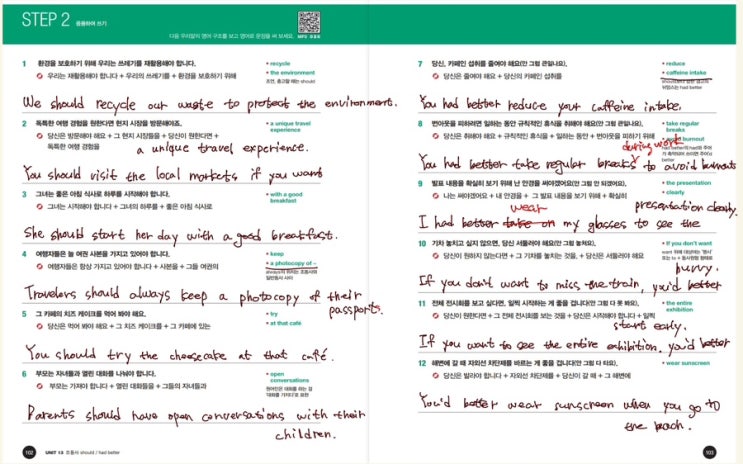 STEP 2 응용하여 쓰기
다음 우리말의 영어 구조를 보고 영어로 문장을 써 보세요.
1 환경을 보호하기 위해 우리는 쓰레기를 재활용해야 합니다.
우리는 재활용해야 합니다 + 우리의 쓰레기를 + 환경을 보호하기 위해
• recycle
• the environment
We should recycle our waste to protect the environment.
2 독특한 여행 경험을 원한다면 현지 시장을 방문해야죠.
당신은 방문해야 해요 + 그 현지 시장들을 + 당신이 원한다면 +
독특한 여행 경험을
• a unique travel
experience
a unique travel experience.
You should visit the local markets if you want
3 그녀는 좋은 아침 식사로 하루를 시작해야 합니다.
그녀는 시작해야 합니다 + 그녀의 하루를 + 좋은 아침 식사로
• with a good
breakfast
She should start her day with a good breakfast.
4 여행자들은 늘 여권 사본을 가지고 있어야 합니다.
여행자들은 항상 가지고 있어야 합니다 + 사본을 + 그들 여권의
• keep
• a photocopy of ~
Travelers should always keep a photocopy of their
passports.
5 그 카페의 치즈 케이크를 먹어 봐야 해요.
당신은 먹어 봐야 해요 + 그 치즈 케이크를 + 그 카페에 있는
• try
• at that café
You should try the cheesecake at that café.
6 부모는 자녀들과 열린 대화를 나눠야 합니다.
부모는 가져야 합니다 + 열린 대화들을 + 그들의 자녀들과
• open
conversations
Parents should have open conversations with their
children.
102 UNIT 13 조동사 should / had better
7 당신, 카페인 섭취를 줄여야 해요(안 그럼 큰일나요).
당신은 줄여야 해요 + 당신의 카페인 섭취를
• reduce
• caffeine intake
You had better reduce your caffeine intake.
8 번아웃을 피하려면 일하는 동안 규칙적인 휴식을 취해야 해요(안 그럼 큰일나요).
당신은 취해야 해요 + 규칙적인 휴식을 + 일하는 동안 + 번아웃을 피하기 위해
• take regular
breaks
burnout
during work
You had better take regular breaks to avoid burnouts
9 발표 내용을 확실히 보기 위해 난 안경을 써야겠어요(안 그럼 안 되겠어요).
나는 써야겠어요 + 내 안경을 + 그 발표 내용을 보기 위해 + 확실히
• the presentation
• clearly
wear presentation clearly.
I had better take on my glasses to see the
10 기차 놓치고 싶지 않으면, 당신 서둘러야 해요(안 그럼 놓쳐요).
당신이 원하지 않는다면 + 그 기차를 놓치는 것을, + 당신은 서둘러야 해요
• If you don't want
hurry.
If you don't want to miss the train, you'd better
11 전체 전시회를 보고 싶다면, 일찍 시작하는 게 좋을 겁니다(안 그럼 다 못 봐요).
당신이 원한다면 + 그 전체 전시회를 보는 것을 + 당신은 시작해야 합니다 + 일찍
• the entire
exhibition
start early.
If you want to see the entire exhibition, you'd better
12 해변에 갈 때 자외선 차단제를 바르는 게 좋을 겁니다(안 그럼 다 타요).
당신은 발라야 합니다 + 자외선 차단제를 + 당신이 갈 때 + 그 해변에
• wear sunscreen
You'd better wear sunscreen when you go to
the beach.
103